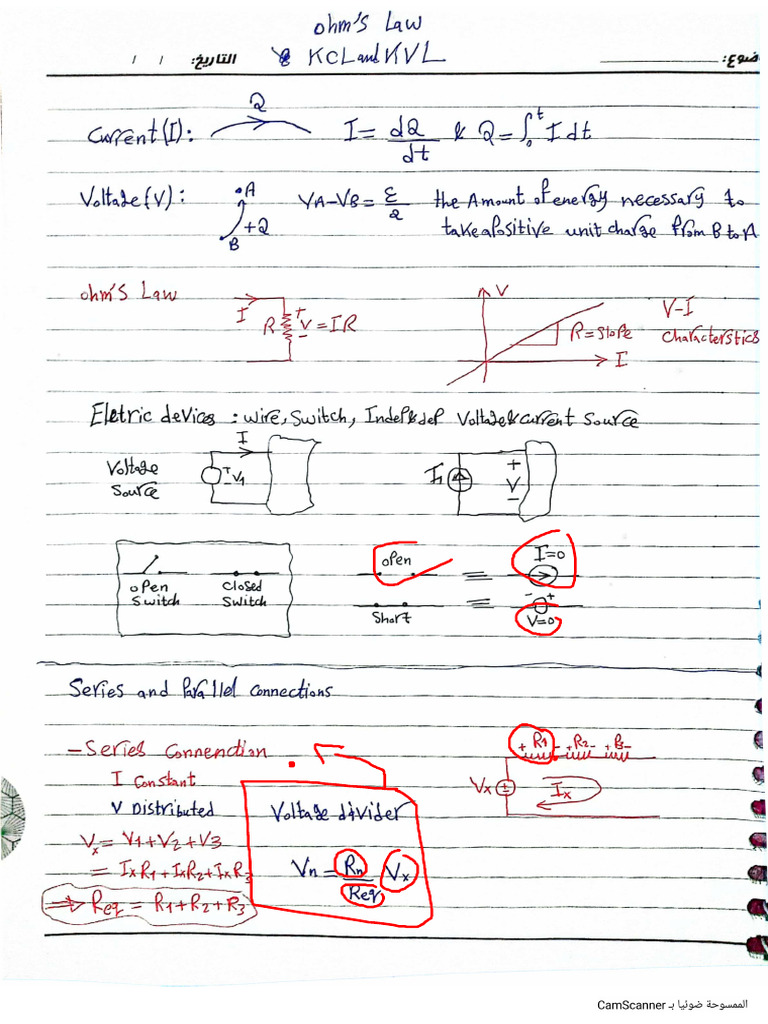 ohm's Law
التاريخ: / / & KCL and KVL ضوع:
Q
Current (I): I = dQ/dt & Q = ∫₀ᵗ I dt
Voltage (V): A VA-VB = ε/Q the Amount of energy necessary to
+Q
B take a positive unit charge from B to A
ohm's Law I R + V = IR - V I R = slope V-I
characterstics
Eletric devices : wire, Switch, Indep & dep Voltage & current source
Voltage
Source
I + - V1 I1 + V -
open
Switch
Closed
Switch
open ≡ I=0
Short ≡ - + V=0
Series and Parallel connections
- Series Connenction
I Constant
V Distributed
Vx = V1 + V2 + V3
= IxR1 + IxR2 + IxR3
⇒ Req = R1 + R2 + R3
Voltage divider
Vn = Rn/Req Vx
+ R1 - + R2 - + R3 -
Vx ± Ix
الممسوحة ضوئيا بـ CamScanner